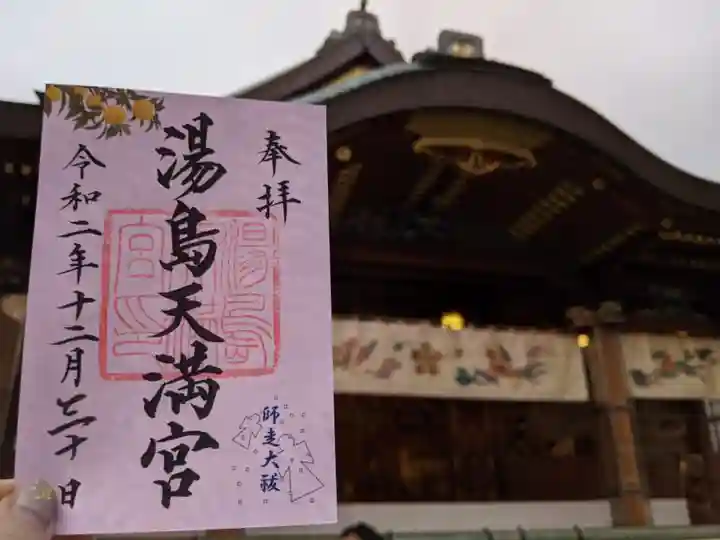 奉拝
湯島天満宮
師走大祓
令和二年十二月三十日